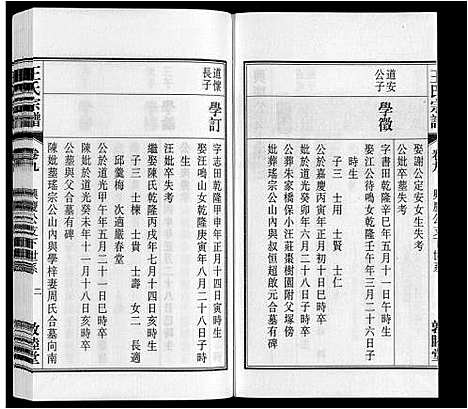 王氏宗譜
卷九
興慶公支下世系
敦睦堂
道安公子
學徵
娶謝公定安女生失考
汪妣卒墓失考
字書田乾隆辛巳年五月十一日辰時生
公於嘉慶丙寅年正月初十日巳時卒
公葬朱家橋保小汪莊棗樹園附父塚傍
子三 士用 士賢 士仁
娶江公待鳴女乾隆壬午年三月二十六日子
時生
妣於道光癸卯年六月二十八日酉時卒
妣葬瑤宗公山內與叔恒超啟元合墓有碑
道懷長子
學訂
字志田乾隆甲申年正月十四日寅時生
娶汪鳴山女乾隆庚寅年八月二十八日子時
生
汪妣卒失考
繼娶陳氏乾隆丙戌年七月十四日亥時生
子三 士棟 士貴 士壽 女二 長適
邱羹梅 次適嚴春堂
公於道光甲午年五月二十一日巳時卒
妣於道光癸未年十一月十八日亥時卒
公墓與父母合墓有碑
陳妣墓瑤宗公山內與學梓妻周氏合墓向南
王氏宗譜
卷九
興慶公支下世系
二
敦睦堂